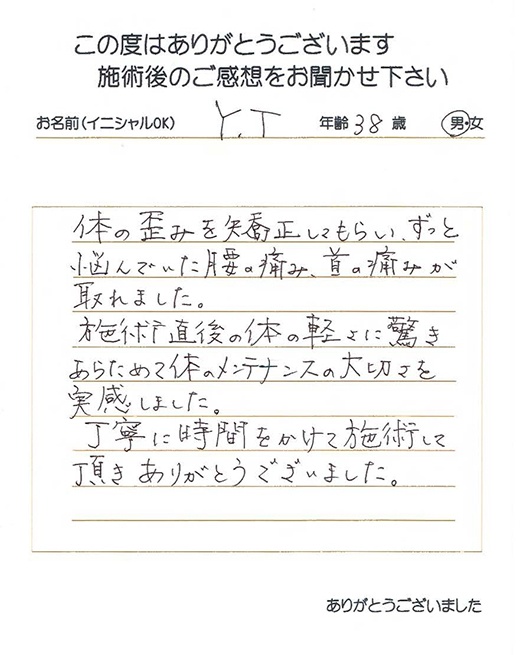 この度はありがとうございます
施術後のご感想をお聞かせ下さい
お名前(イニシャルOK) Y.T 年齢 38 歳 男・女
体の歪みを矯正してもらい、ずっと
悩んでいた腰の痛み、首の痛みが
取れました。
施術直後の体の軽さに驚き
あらためて体のメンテナンスの大切さを
実感しました。
丁寧に時間をかけて施術して
頂きありがとうございました。
ありがとうございました